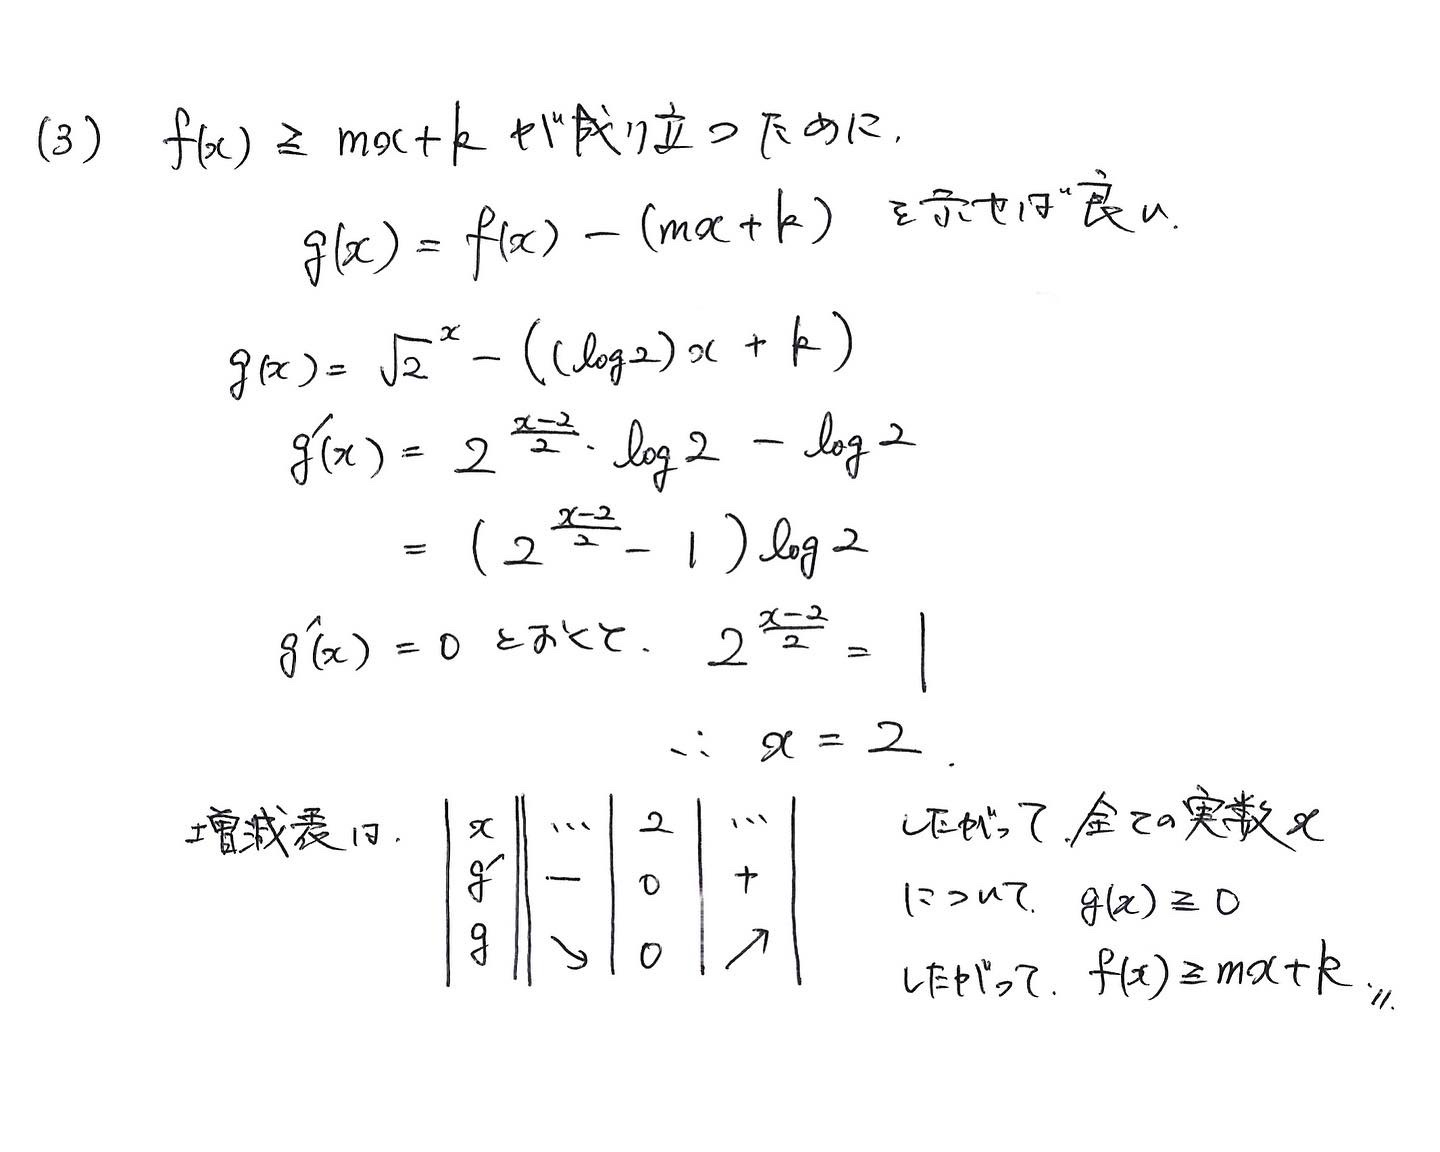 (3) f(x) ≧ mx+k が成り立つために、
g(x) = f(x) − (mx+k) を示せば良い.
g(x) = √2^x − ((log2)x + k)
g′(x) = 2^{(x−2)/2}・log2 − log2
= (2^{(x−2)/2} − 1) log2
g′(x) = 0 とおくと、 2^{(x−2)/2} = 1
∴ x = 2.
増減表は、
x … 2 …
g′ − 0 +
g ↘ 0 ↗
したがって、全ての実数x
について、g(x) ≧ 0
したがって、f(x) ≧ mx+k. //.